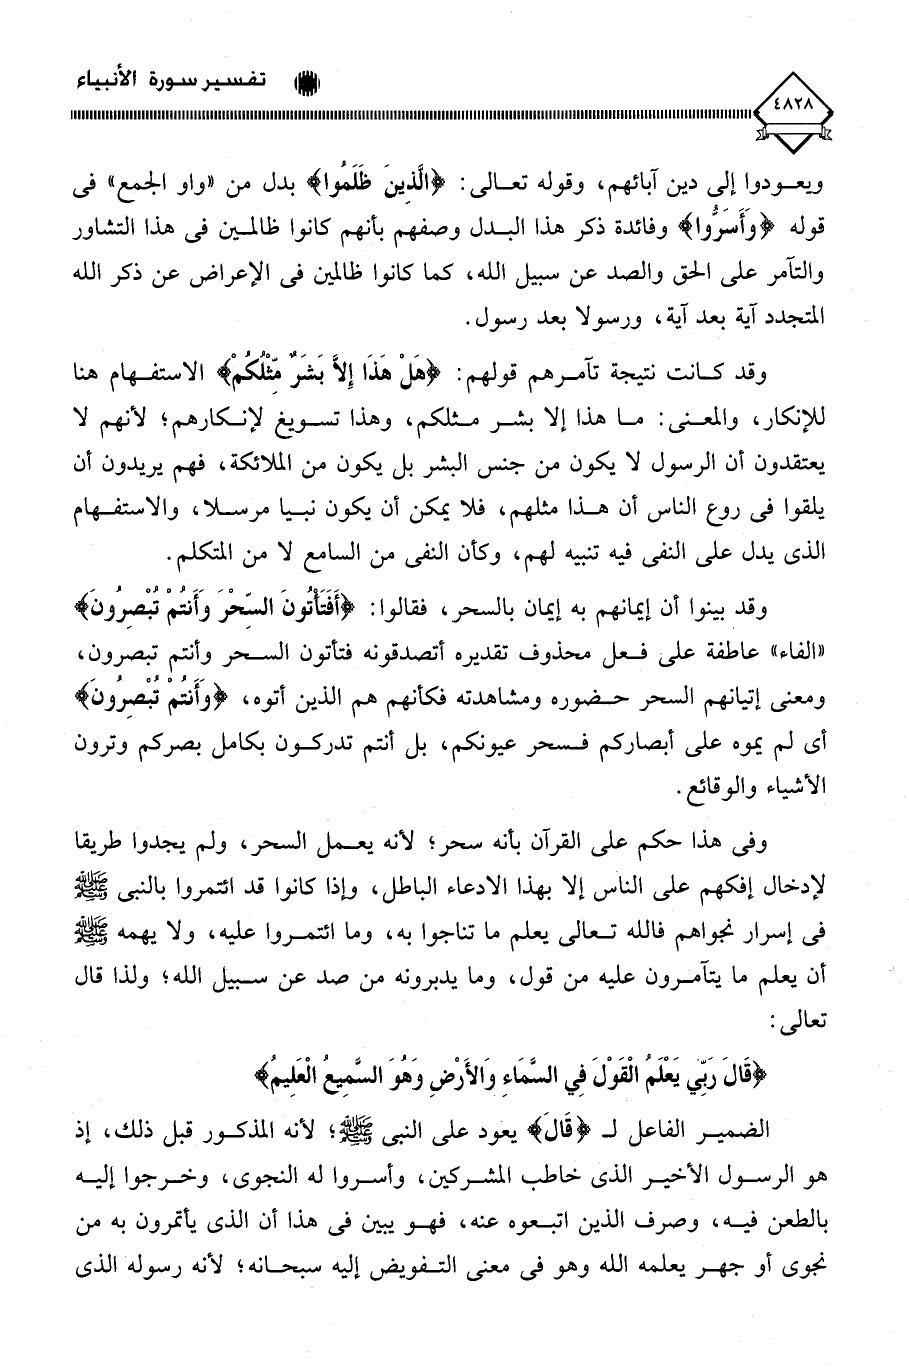 تفسير سورة الأنبياء
٤٨٢٨
ويعودوا إلى دين آبائهم، وقوله تعالى: ﴿الَّذِينَ ظَلَمُوا﴾ بدل من «واو الجمع» فى
قوله ﴿وَأَسَرُّوا﴾ وفائدة ذكر هذا البدل وصفهم بأنهم كانوا ظالمين فى هذا التشاور
والتآمر على الحق والصد عن سبيل الله، كما كانوا ظالمين فى الإعراض عن ذكر الله
المتجدد آية بعد آية، ورسولا بعد رسول.
وقد كانت نتيجة تآمرهم قولهم: ﴿هَلْ هَذَا إِلاَّ بَشَرٌ مِّثْلُكُمْ﴾ الاستفهام هنا
للإنكار، والمعنى: ما هذا إلا بشر مثلكم، وهذا تسويغ لإنكارهم؛ لأنهم لا
يعتقدون أن الرسول لا يكون من جنس البشر بل يكون من الملائكة، فهم يريدون أن
يلقوا فى روع الناس أن هذا مثلهم، فلا يمكن أن يكون نبيا مرسلا، والاستفهام
الذى يدل على النفى فيه تنبيه لهم، وكأن النفى من السامع لا من المتكلم.
وقد بينوا أن إيمانهم به إيمان بالسحر، فقالوا: ﴿أَفَتَأْتُونَ السِّحْرَ وَأَنتُمْ تُبْصِرُونَ﴾
«الفاء» عاطفة على فعل محذوف تقديره أتصدقونه فتأتون السحر وأنتم تبصرون،
ومعنى إتيانهم السحر حضوره ومشاهدته فكأنهم هم الذين أتوه، ﴿وَأَنتُمْ تُبْصِرُونَ﴾
أى لم يموه على أبصاركم فسحر عيونكم، بل أنتم تدركون بكامل بصركم وترون
الأشياء والوقائع.
وفى هذا حكم على القرآن بأنه سحر؛ لأنه يعمل السحر، ولم يجدوا طريقا
لإدخال إفكهم على الناس إلا بهذا الادعاء الباطل، وإذا كانوا قد ائتمروا بالنبى ﷺ
فى إسرار نجواهم فالله تعالى يعلم ما تناجوا به، وما ائتمروا عليه، ولا يهمه ﷺ
أن يعلم ما يتآمرون عليه من قول، وما يدبرونه من صد عن سبيل الله؛ ولذا قال
تعالى:
﴿قَالَ رَبِّي يَعْلَمُ الْقَوْلَ فِي السَّمَاءِ وَالأَرْضِ وَهُوَ السَّمِيعُ الْعَلِيمُ﴾
الضمير الفاعل لـ ﴿قَالَ﴾ يعود على النبى ﷺ؛ لأنه المذكور قبل ذلك، إذ
هو الرسول الأخير الذى خاطب المشركين، وأسروا له النجوى، وخرجوا إليه
بالطعن فيه، وصرف الذين اتبعوه عنه، فهو يبين فى هذا أن الذى يأتمرون به من
نجوى أو جهر يعلمه الله وهو فى معنى التفويض إليه سبحانه؛ لأنه رسوله الذى